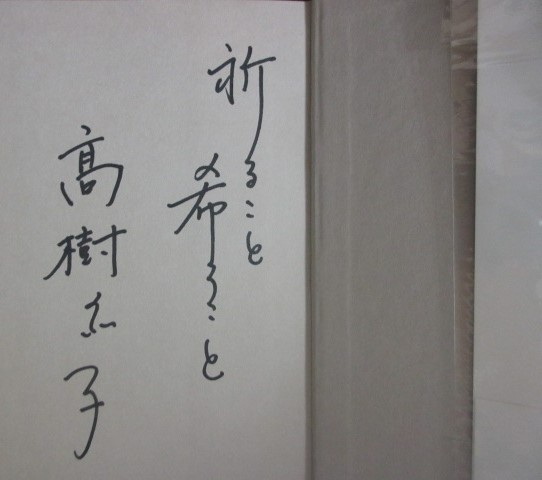 祈ること
希うこと
髙樹のぶ子